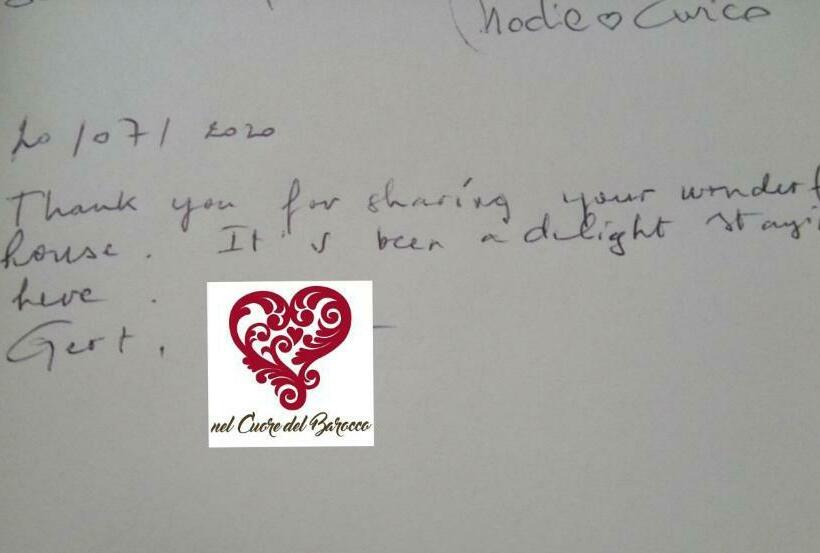 20/07/2020
Thank you for sharing your wonderf
house. It's been a delight stayi
here.
Gert,
nel Cuore del Barocco